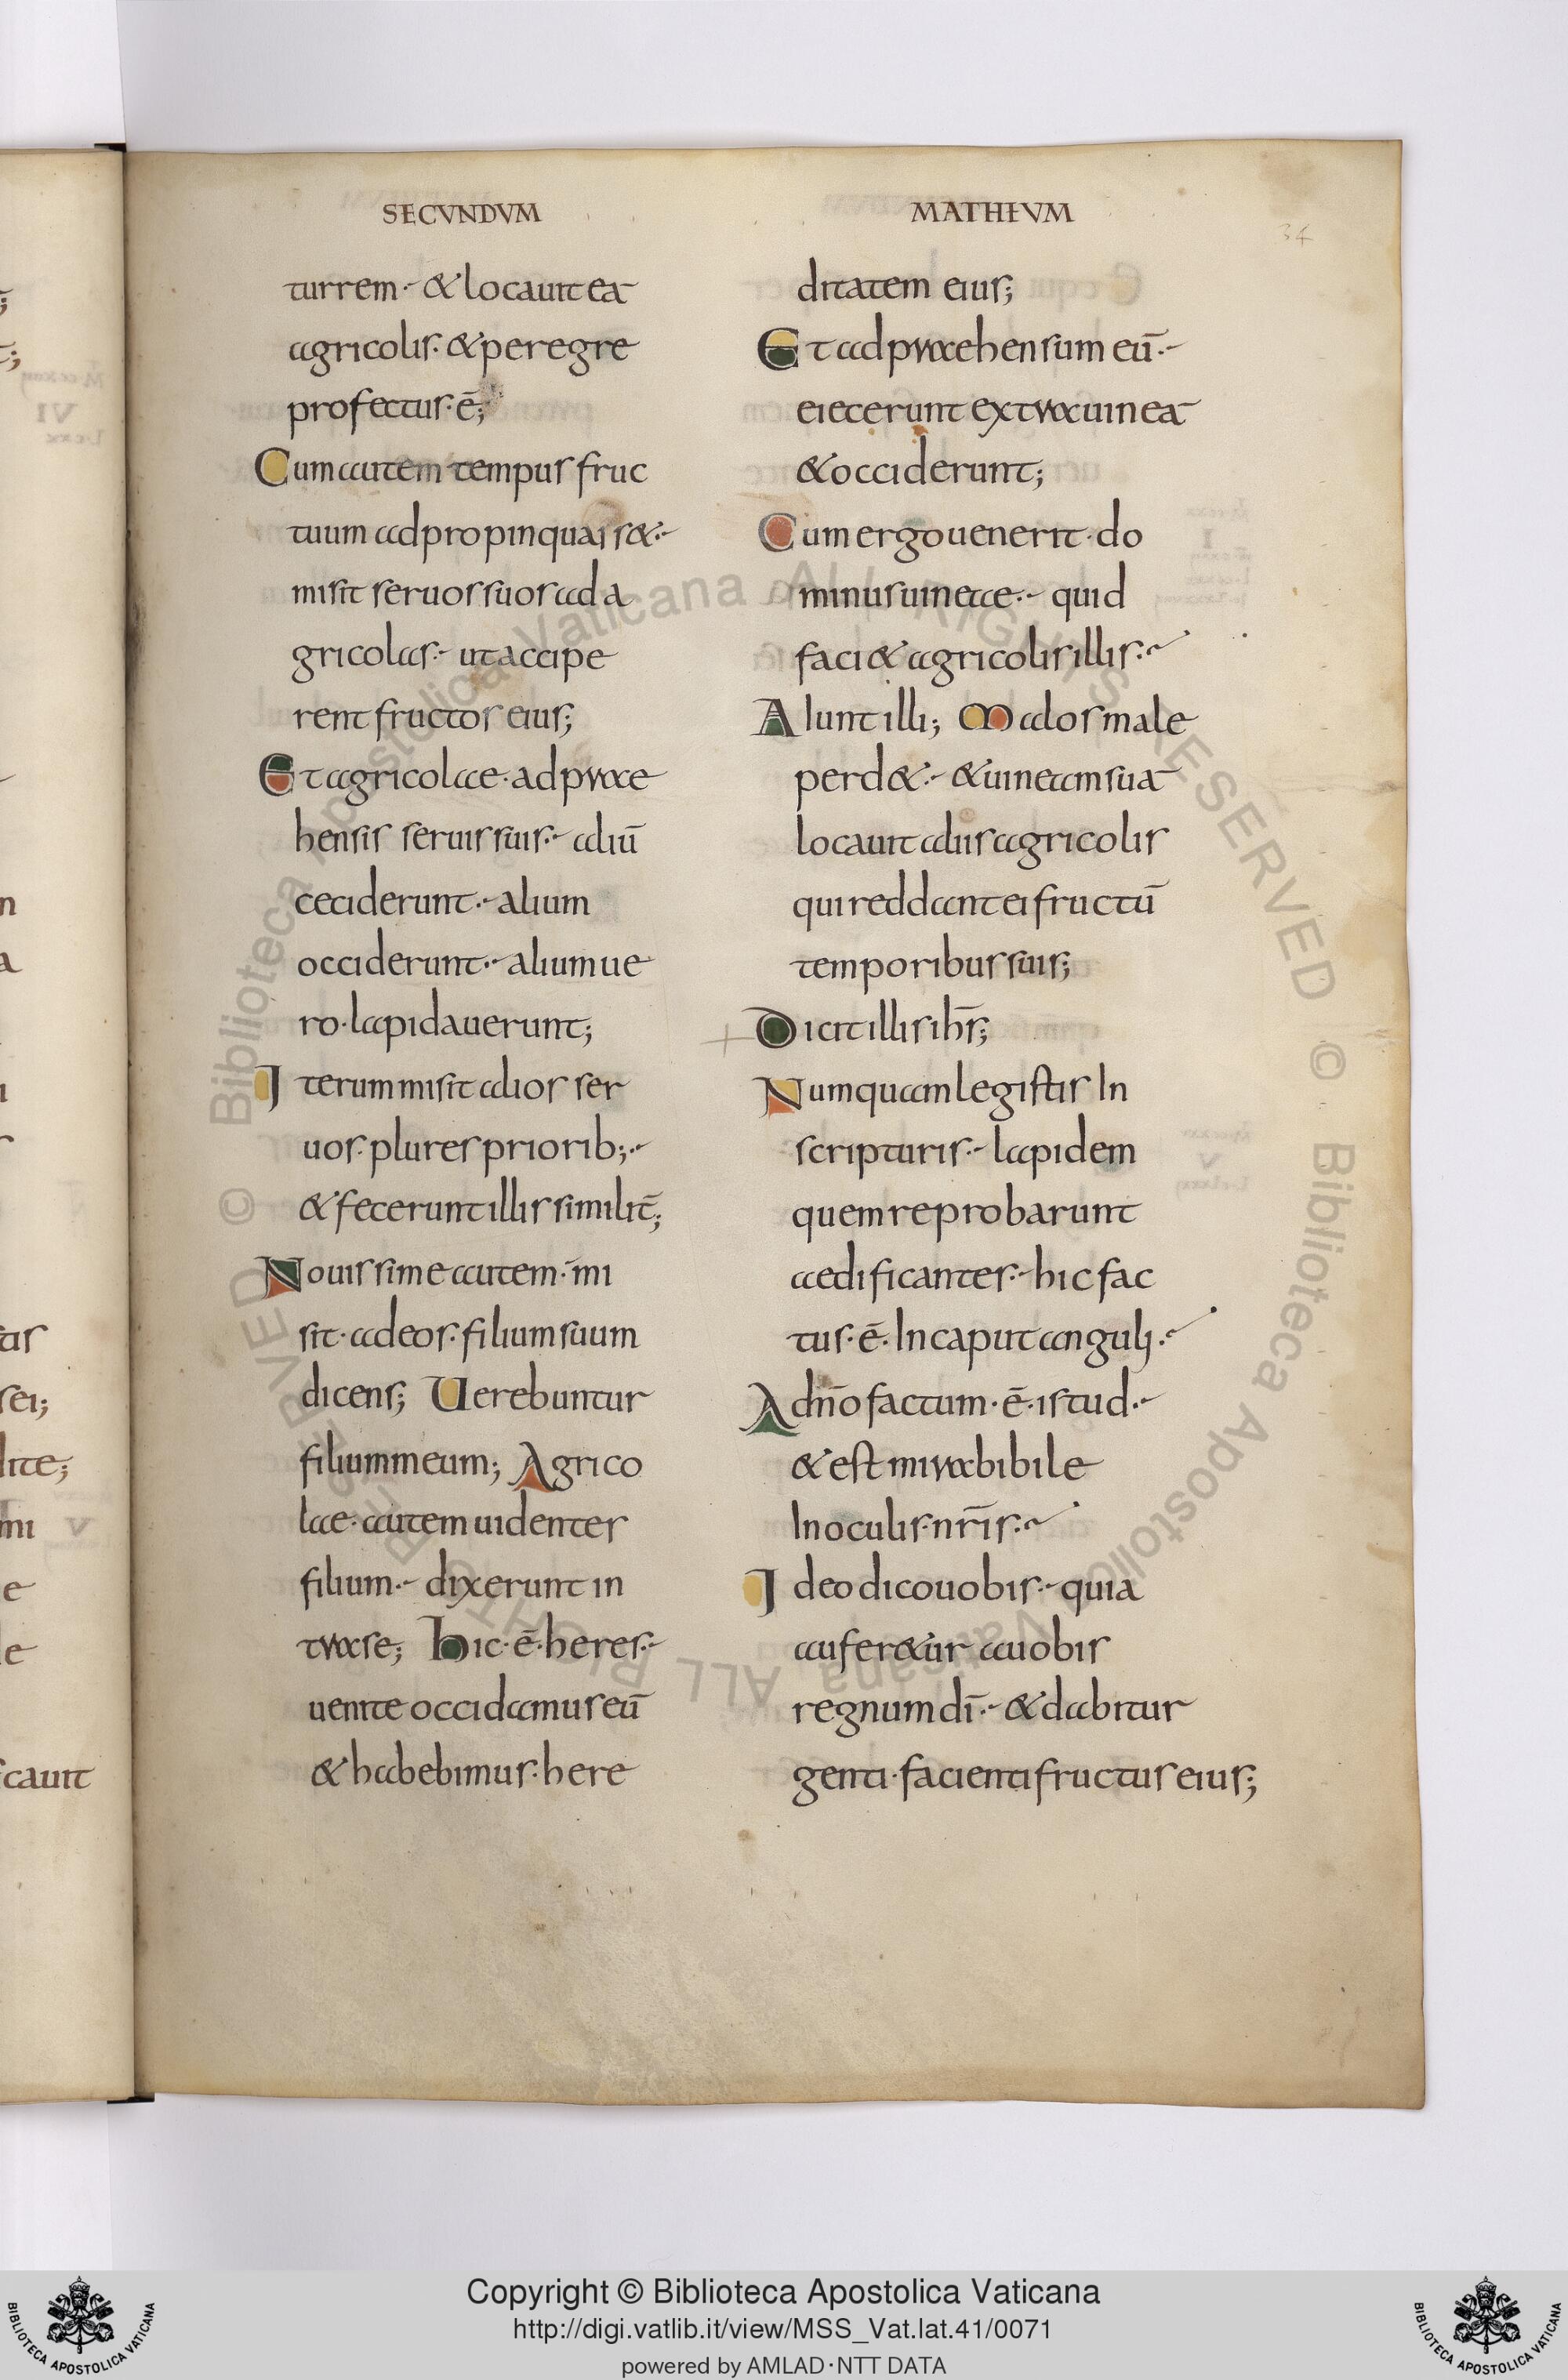 SECVNDVM
turrem · & locauit eā
agricolis · & peregre
profectus · ē;
Cum autem tempus fruc
tuum adpropinquais&·
misit seruos suos ad a
gricolas · ut accipe
rent fructos eius;
Et agricolae · adprae
hensis seruis suis · aliū
ceciderunt · alium
occiderunt · alium ue
ro · lapidauerunt;
Iterum misit alios ser
uos · plures priorib; ·
& fecerunt illis similit̄;
Nouissime autem · mi
sit · ad eos · filium suum
dicens; Uerebuntur
filium meum; Agrico
lae · autem uidentes
filium · dixerunt in
tra se; Hic · ē · heres ·
uenite occidamus eū
& habebimus · here
MATHEVM
34
ditatem eius;
Et adpraehensum eū ·
eiecerunt extra uineā
& occiderunt;
Cum ergo uenerit · do
minus uineae · quid
faci& agricolis illis ·
Aiunt illi; Malos male
perd& · & uineam suā
locauit aliis agricolis
qui reddant ei fructū
temporibus suis;
Dicit illis ih̄s;
Numquam legistis In
scripturis · lapidem
quem reprobarunt
aedificantes · hic fac
tus · ē · In caput anguli ·
A dn̄o factum · ē · istud ·
& est mirabibile
In oculis · nr̄is ·
Ideo dico uobis · quia
aufer&ur a uobis
regnum dī · & dabitur
genti · facienti fructus eius;
Copyright © Biblioteca Apostolica Vaticana
http://digi.vatlib.it/view/MSS_Vat.lat.41/0071
powered by AMLAD·NTT DATA